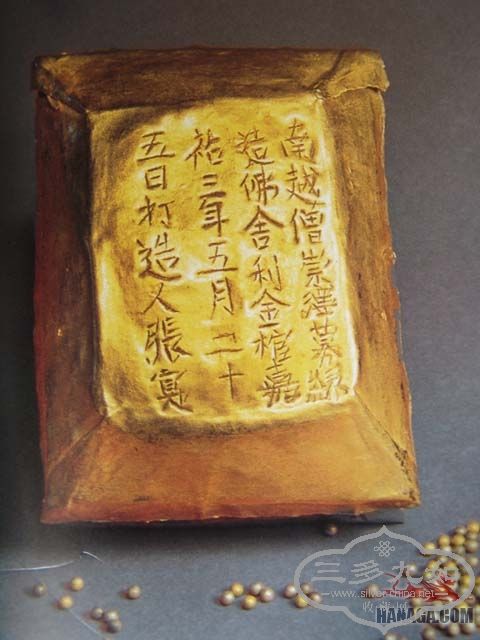 南越僧崇澤募緣
造佛舍利金棺嘉
祐三年五月二十
五日打造人張寔
三多九如
HANAGA.COM